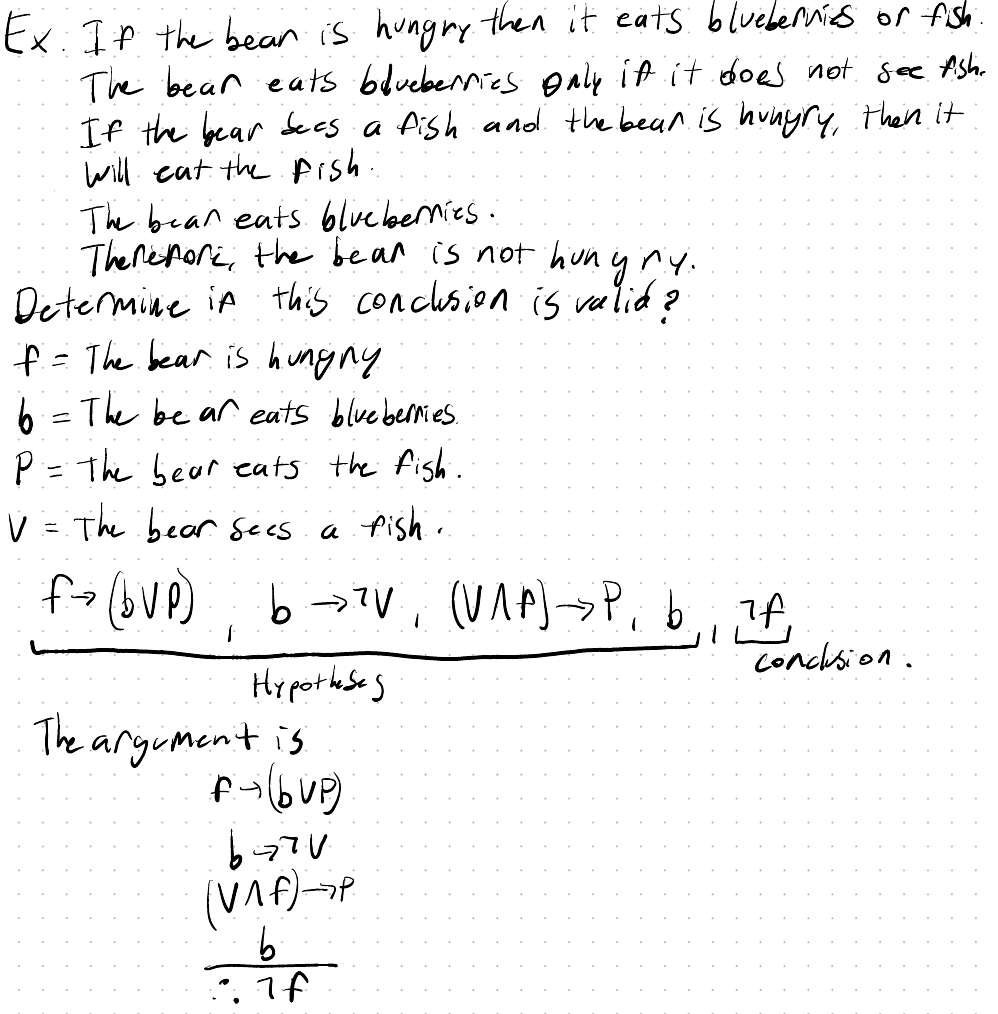 Ex. If the bear is hungry then it eats blueberries or fish.
The bear eats blueberries only if it does not see fish.
If the bear sees a fish and the bear is hungry, then it
will eat the fish.
The bear eats blueberries.
Therefore, the bear is not hungry.
Determine if this conclusion is valid?
f = The bear is hungry
b = The bear eats blueberries.
P = The bear eats the fish.
V = The bear sees a fish.
f→(b∨P), b→¬V, (V∧f)→P, b, ¬f
Hypotheses conclusion.
The argument is
f→(b∨P)
b→¬V
(V∧f)→P
b
∴ ¬f